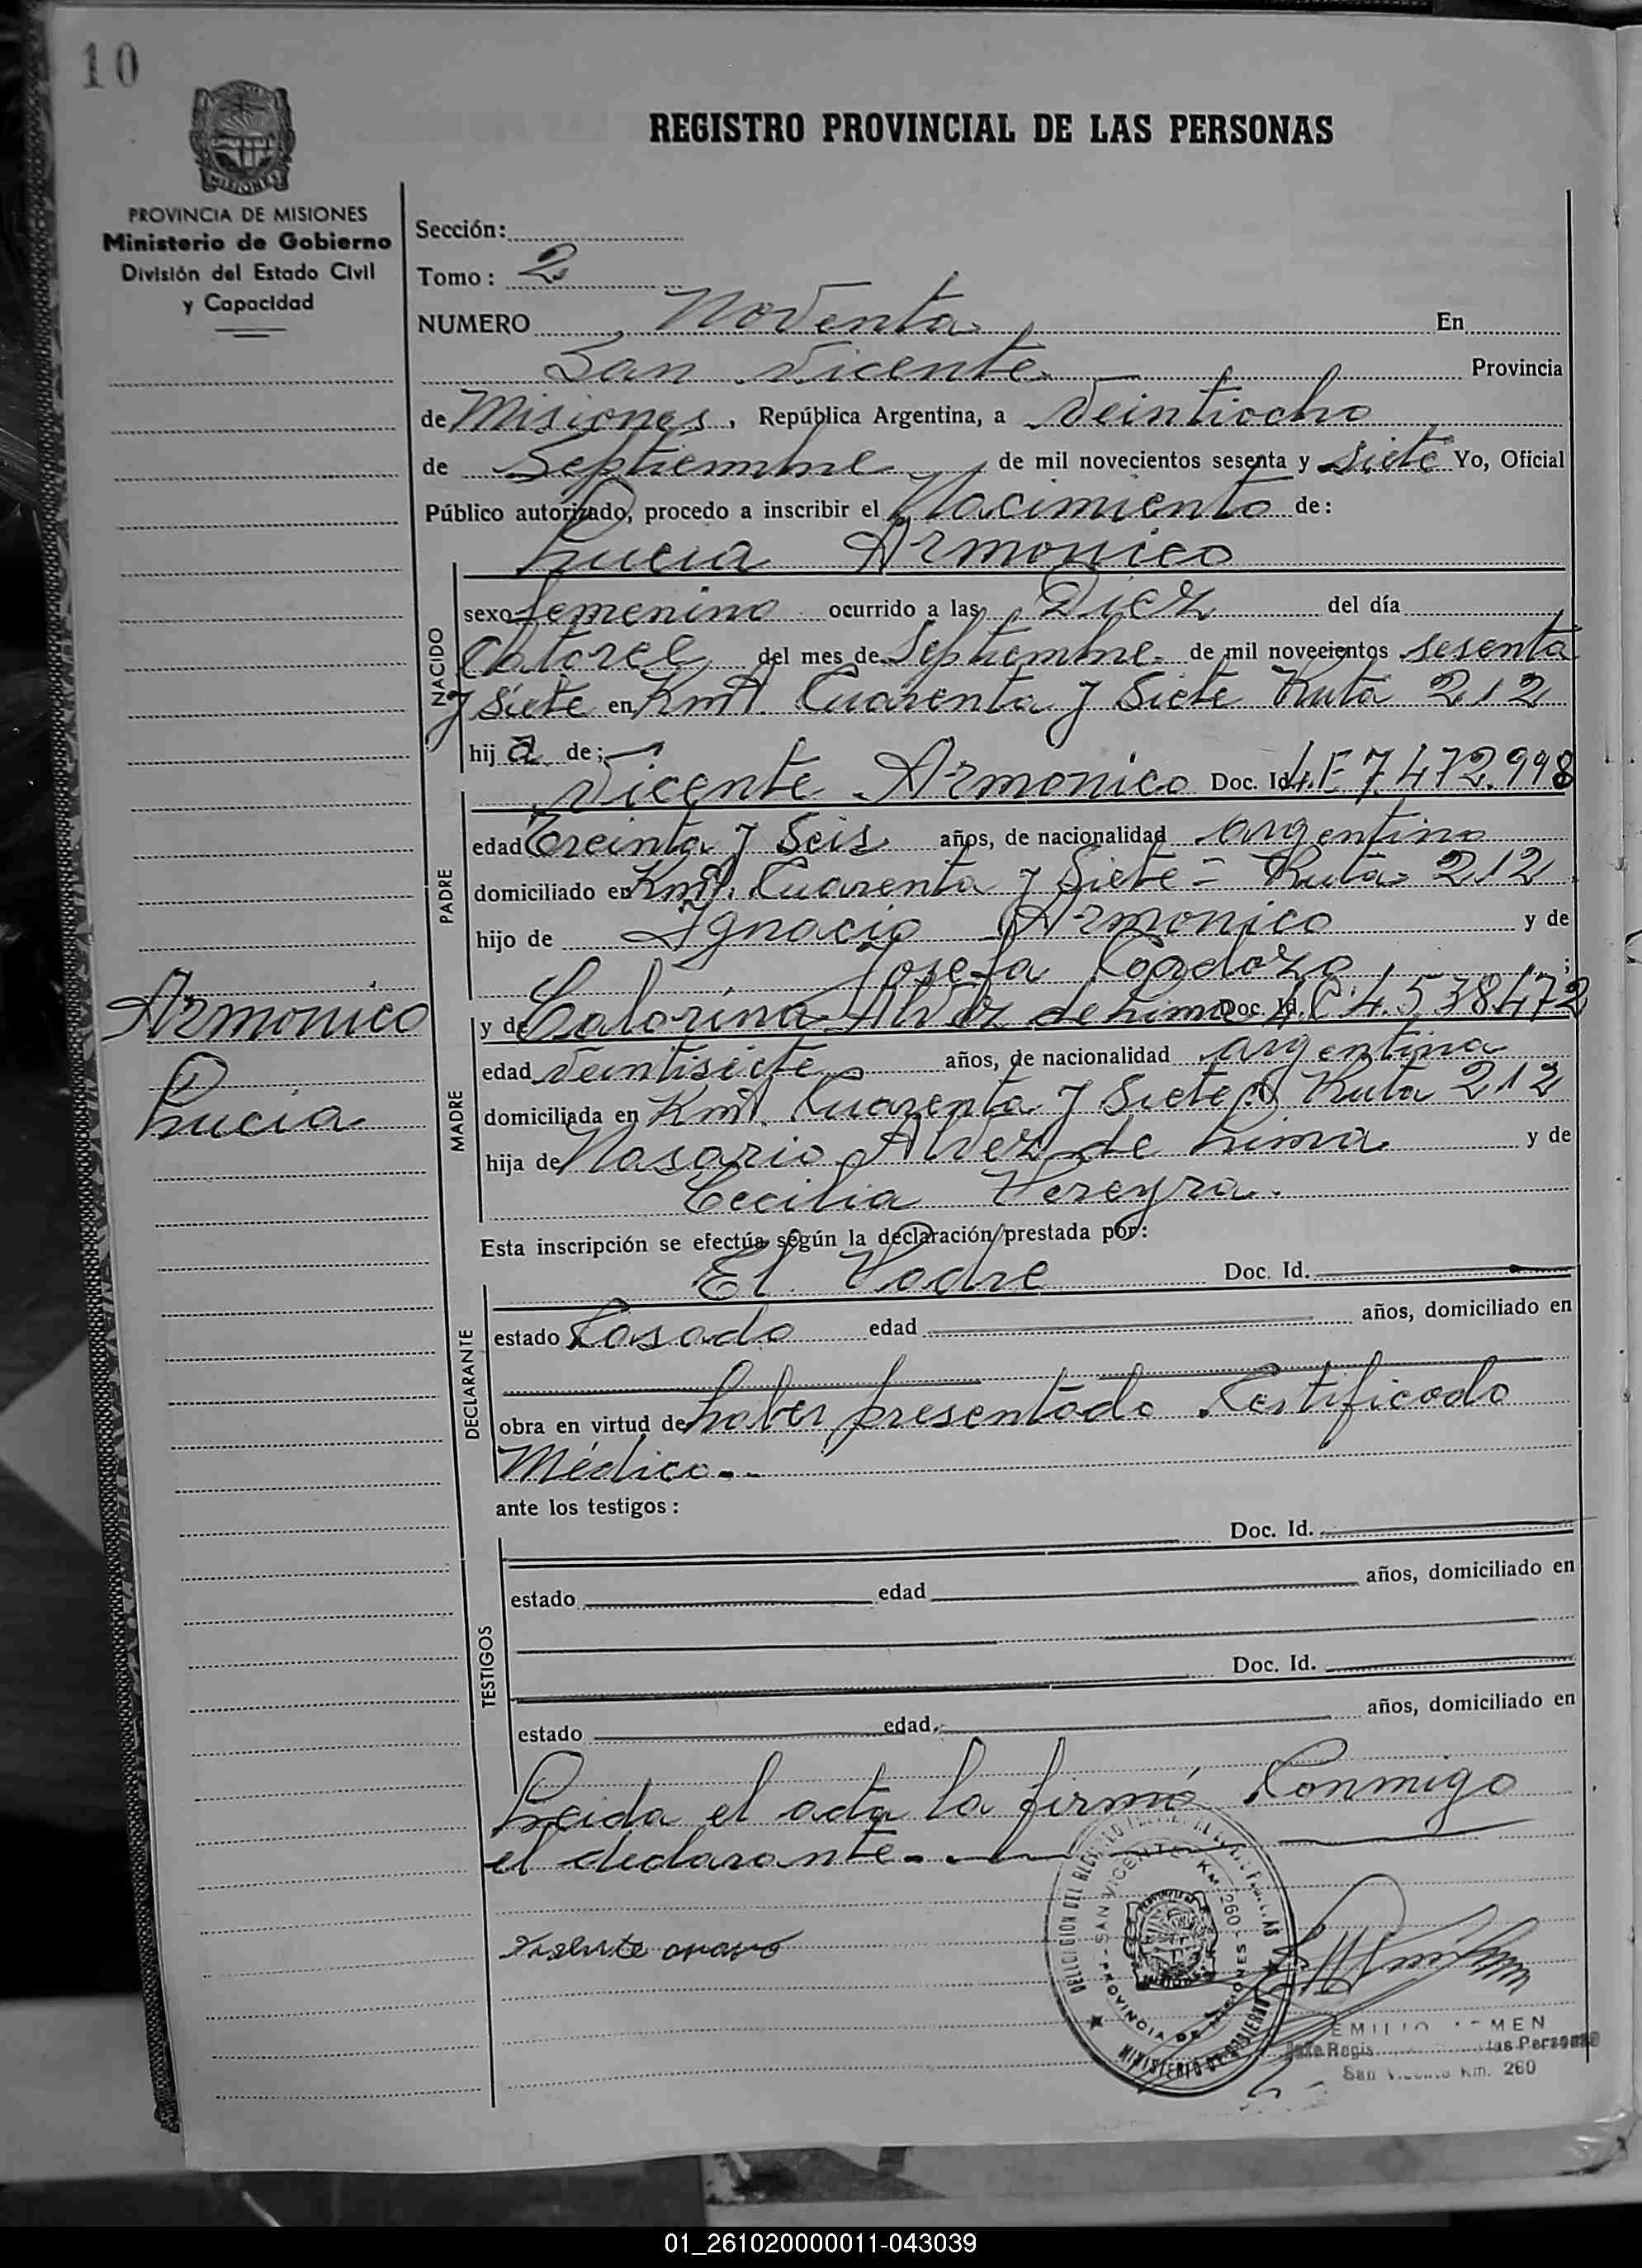 10
REGISTRO PROVINCIAL DE LAS PERSONAS
MISIONES
PROVINCIA DE MISIONES
Ministerio de Gobierno
División del Estado Civil
y Capacidad
Sección:
Tomo: 2
NUMERO Noventa En
San Vicente Provincia
de Misiones, República Argentina, a Veintiocho
de Septiembre de mil novecientos sesenta y siete Yo, Oficial
Público autorizado, procedo a inscribir el Nacimiento de:
Lucia Armonico
NACIDO
sexo femenino ocurrido a las Diez del día
Catorce del mes de Septiembre de mil novecientos sesenta
y siete en Kmt. Cuarenta y Siete Ruta 212
hija de;
Vicente Armonico Doc. Id. L.E 7.472.998
PADRE
edad Treinta y Seis años, de nacionalidad argentino
domiciliado en Kmt. Cuarenta y Siete = Ruta 212
hijo de Ignacio Armonico y de
Josefa Cardozo;
Armonico
Lucia
MADRE
y de Calorina Alvez de Lima Doc. Id. L.C. 4.538.472
edad Veintisiete años, de nacionalidad argentina
domiciliada en Kmt. Cuarenta y Siete Ruta 212
hija de Nasario Alvez de Lima y de
Cecilia Pereyra.
Esta inscripción se efectúa según la declaración prestada por:
El Padre Doc. Id.
DECLARANTE
estado Casado edad años, domiciliado en
obra en virtud de haber presentado Certificado
Médico.-
ante los testigos:
Doc. Id.
TESTIGOS
estado edad años, domiciliado en
Doc. Id.
estado edad años, domiciliado en
Leida el acta la firmó Conmigo
el declarante.-
SAN VICENTE KM. 260
PROVINCIA DE MISIONES
MINISTERIO DE GOBIERNO
EMILIO
las Personas
San Vicente Km. 260
01_261020000011-043039